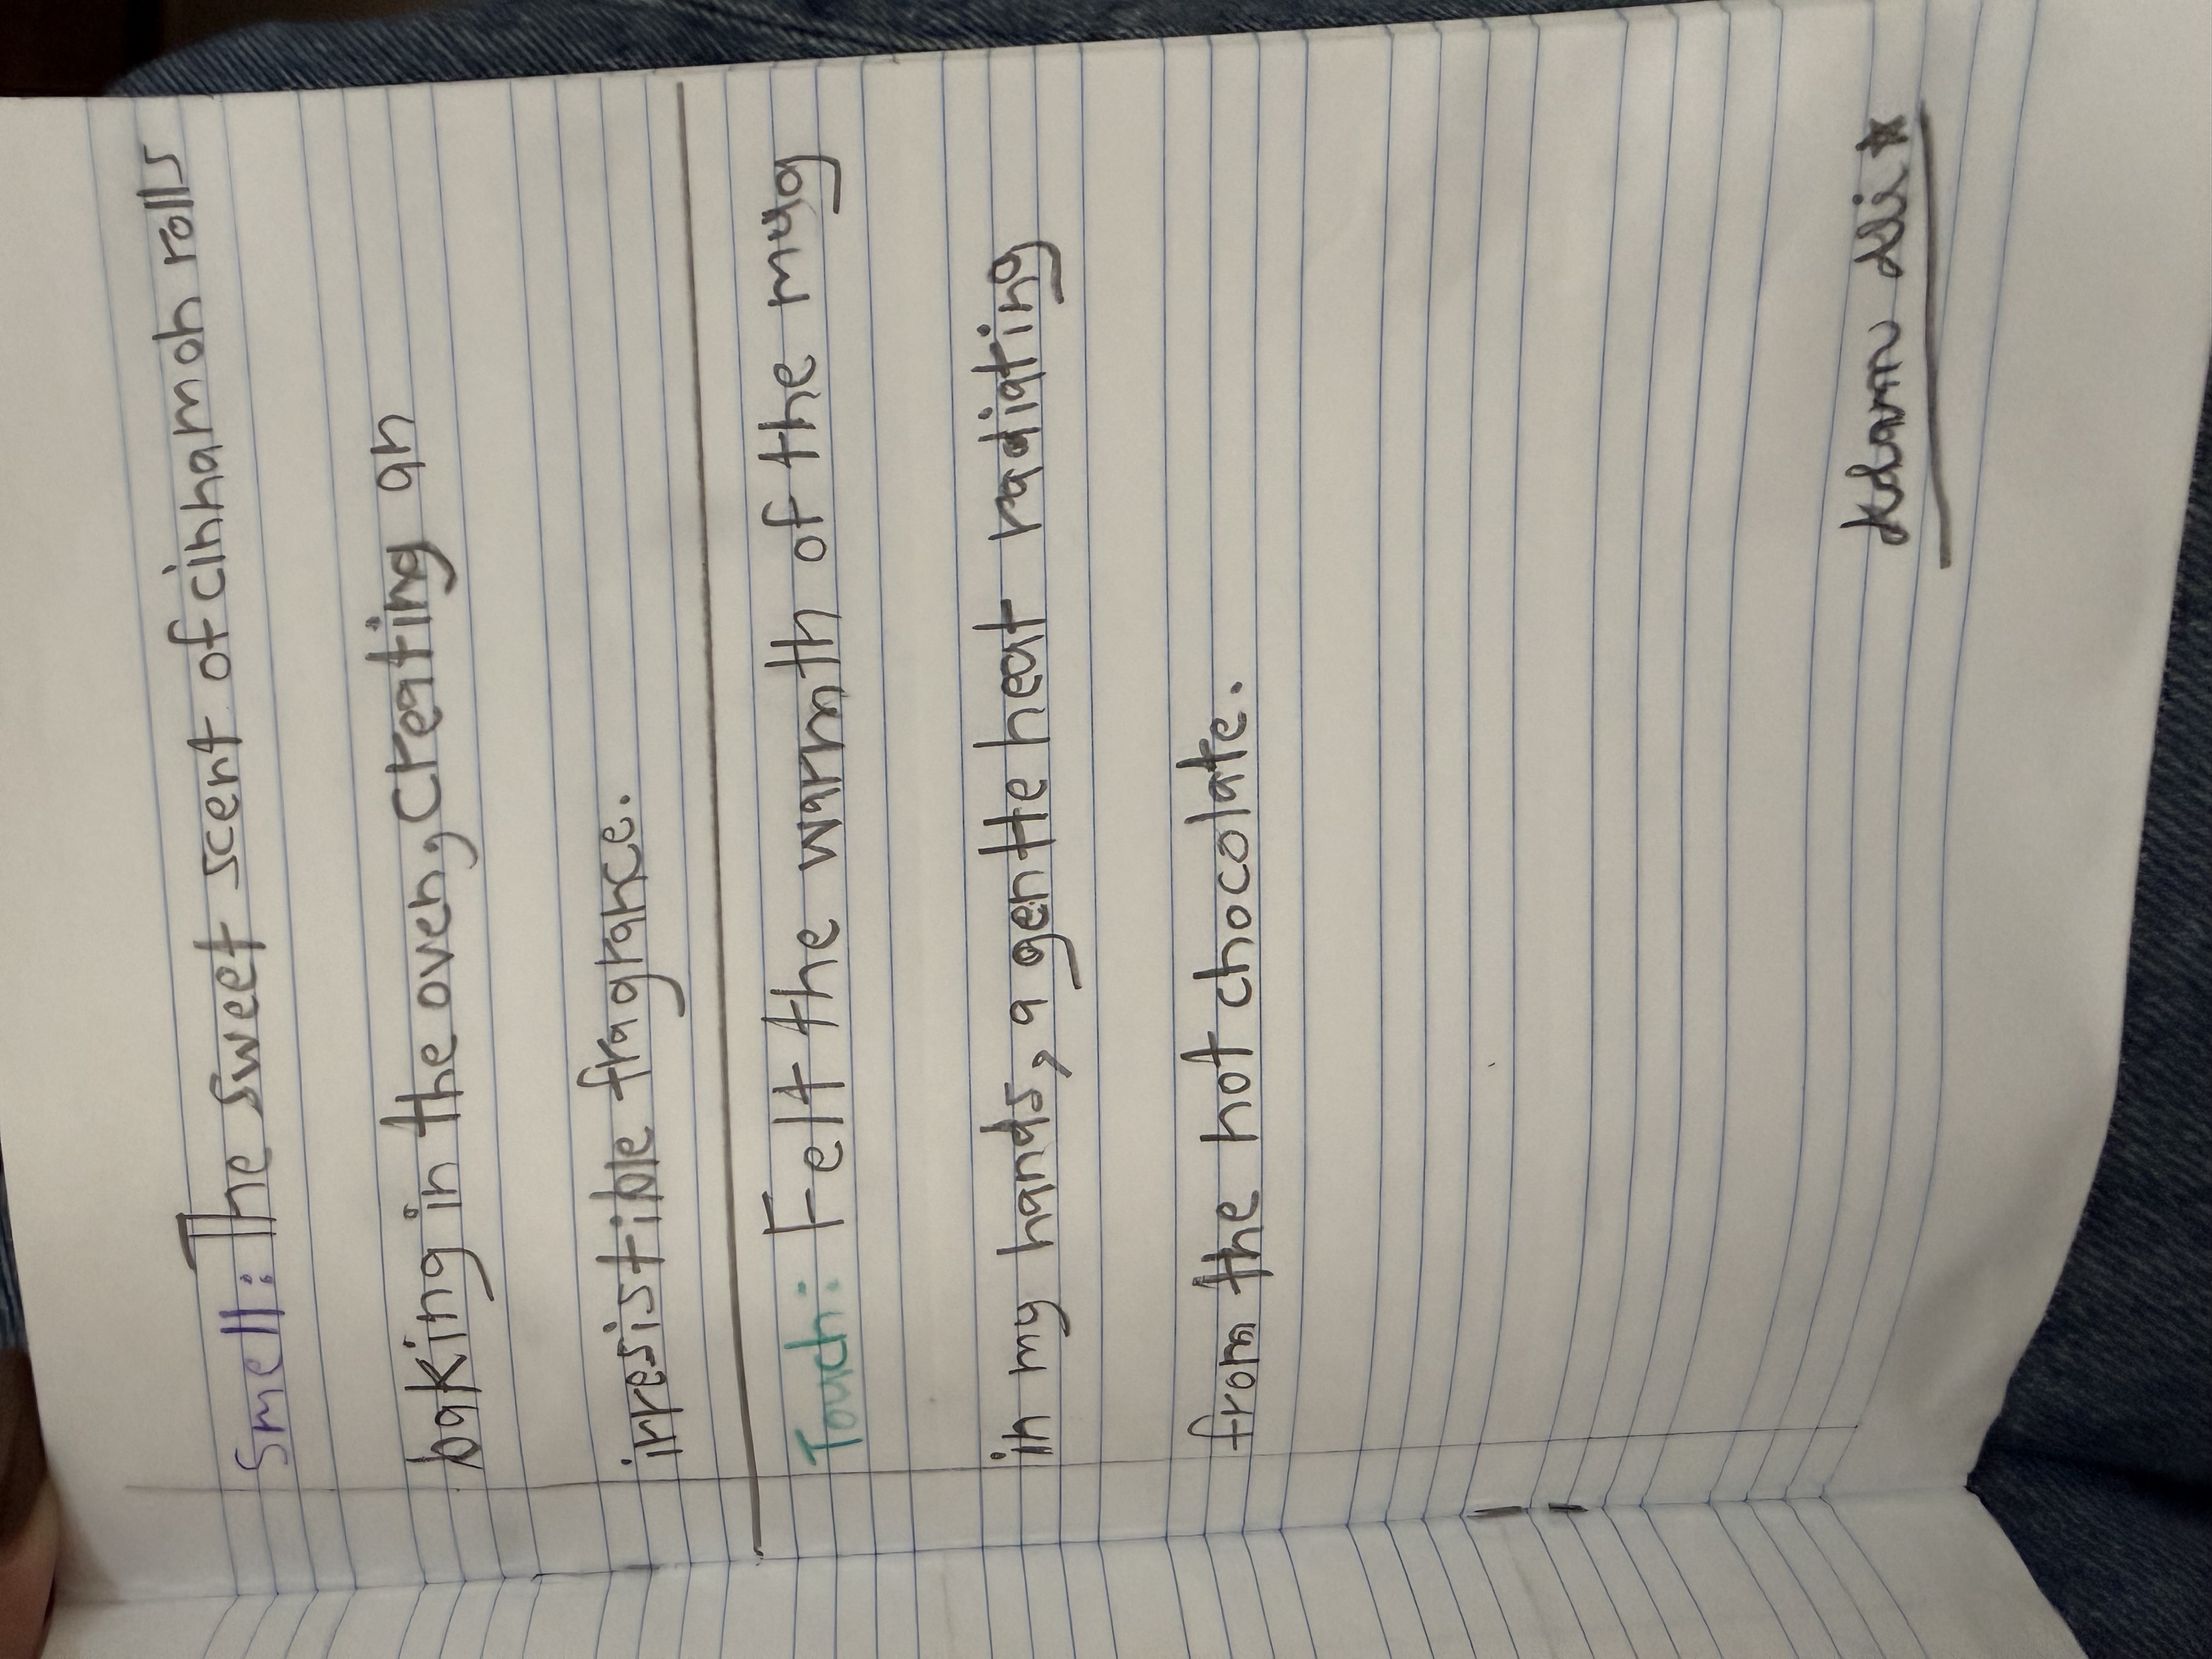 Smell: The sweet scent of cinnamon rolls
baking in the oven, creating an
irresistible fragrance.
Touch: Felt the warmth of the mug
in my hands, a gentle heat radiating
from the hot chocolate.